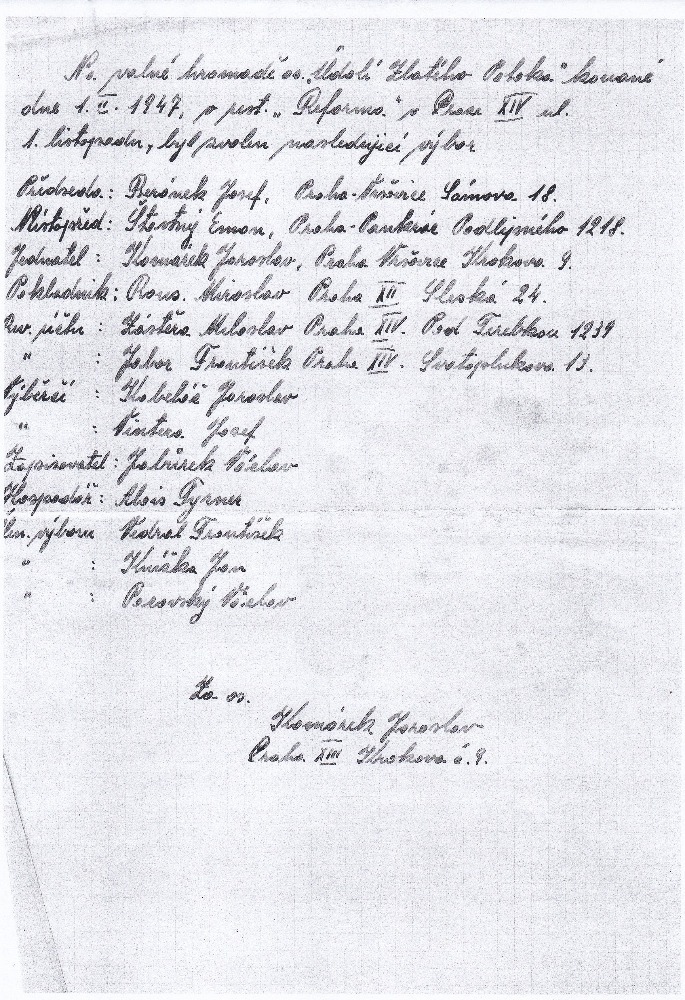 Na valné hromadě os. „Údolí Zlatého Potoka" konané
dne 1. II. 1947, v rest. „Reforma" v Praze XIV ul.
1. listopadu, byl zvolen nasledující výbor
Předseda: Beránek Josef, Praha-Vršovice Sámova 18.
Místopřed: Šťastný Eman, Praha-Pankrác Podlipného 1218.
Jednatel: Komárek Jaroslav, Praha Vršovice Krokova 9.
Pokladník: Rous. Miroslav Praha XII Slezská 24.
Rev. účtu: Zástěra Miloslav Praha XIV. Pod Terebkou 1239
" : Jabor František Praha XIV. Svatoplukova 13.
Výběrčí: Kabeláč Jaroslav
" : Vintera Josef
Zapisovatel: Jabůrek Václav
Hospodář: Alois Tyrner
Čen. výboru Vedral František
" : Knížka Jan
" : Perovský Václav
Za os.
Komárek Jaroslav
Praha XIII Krokova č. 9.